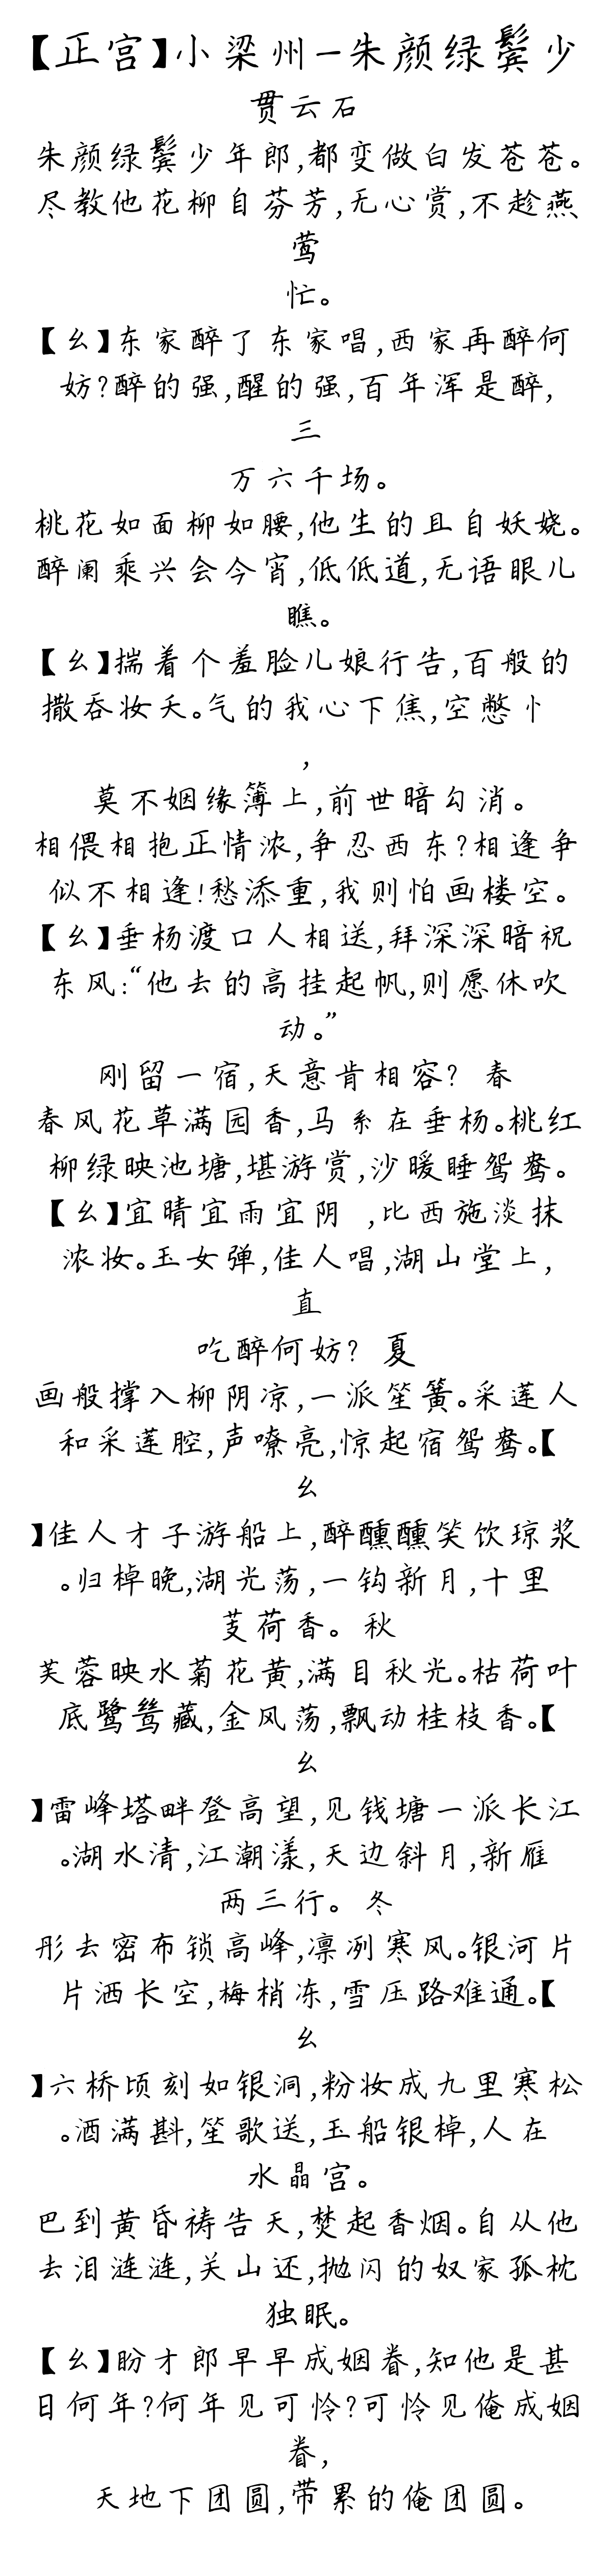 【正宫】小梁州—朱颜绿鬓少
贯云石
朱颜绿鬓少年郎,都变做白发苍苍。
尽教他花柳自芬芳,无心赏,不趁燕
莺
忙。
【幺】东家醉了东家唱,西家再醉何
妨?醉的强,醒的强,百年浑是醉,
三
万六千场。
桃花如面柳如腰,他生的且自妖娆。
醉阑乘兴会今宵,低低道,无语眼儿
瞧。
【幺】揣着个羞脸儿娘行告,百般的
撒吞妆夭。气的我心下焦,空憋忄
,
莫不姻缘簿上,前世暗勾消。
相偎相抱正情浓,争忍西东?相逢争
似不相逢!愁添重,我则怕画楼空。
【幺】垂杨渡口人相送,拜深深暗祝
东风:“他去的高挂起帆,则愿休吹
动。”
刚留一宿,天意肯相容? 春
春风花草满园香,马系在垂杨。桃红
柳绿映池塘,堪游赏,沙暖睡鸳鸯。
【幺】宜晴宜雨宜阴 ,比西施淡抹
浓妆。玉女弹,佳人唱,湖山堂上,
直
吃醉何妨? 夏
画般撑入柳阴凉,一派笙簧。采莲人
和采莲腔,声嘹亮,惊起宿鸳鸯。【
幺
】佳人才子游船上,醉醺醺笑饮琼浆
。归棹晚,湖光荡,一钩新月,十里
芰荷香。 秋
芙蓉映水菊花黄,满目秋光。枯荷叶
底鹭鸶藏,金风荡,飘动桂枝香。【
幺
】雷峰塔畔登高望,见钱塘一派长江
。湖水清,江潮漾,天边斜月,新雁
两三行。 冬
彤去密布锁高峰,凛冽寒风。银河片
片洒长空,梅梢冻,雪压路难通。【
幺
】六桥顷刻如银洞,粉妆成九里寒松
。酒满斟,笙歌送,玉船银棹,人在
水晶宫。
巴到黄昏祷告天,焚起香烟。自从他
去泪涟涟,关山还,抛闪的奴家孤枕
独眠。
【幺】盼才郎早早成姻眷,知他是甚
日何年?何年见可怜?可怜见俺成姻
眷,
天地下团圆,带累的俺团圆。